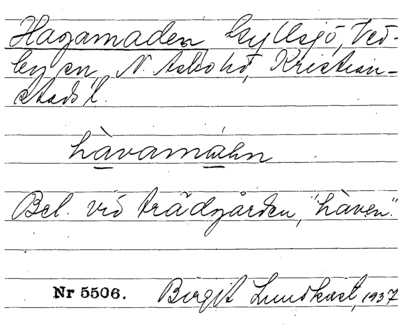 Hagamaden Gyllsjö, Ved-
by sn, N. Åsbo hd, Kristian-
stads l.
hàvamáhn
Bel. vid trädgården, "hàven".
Nr 5506. Birgit Lundkvist, 1937